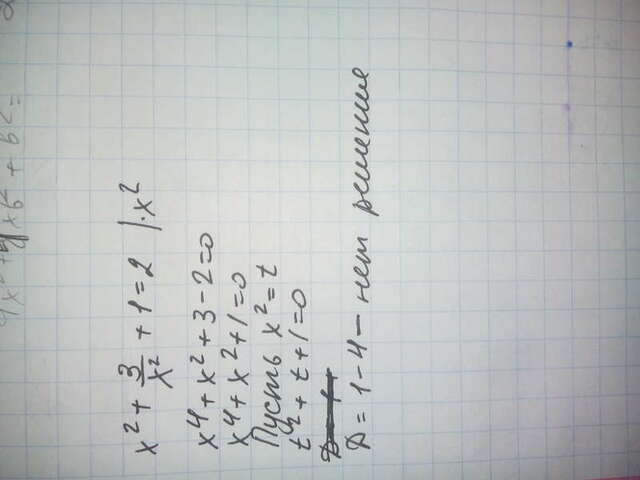 x² + 3/x² + 1 = 2 | · x²
x⁴ + x² + 3 - 2 = 0
x⁴ + x² + 1 = 0
Пусть x² = t
t² + t + 1 = 0
D = 1 - 4 - нет решение